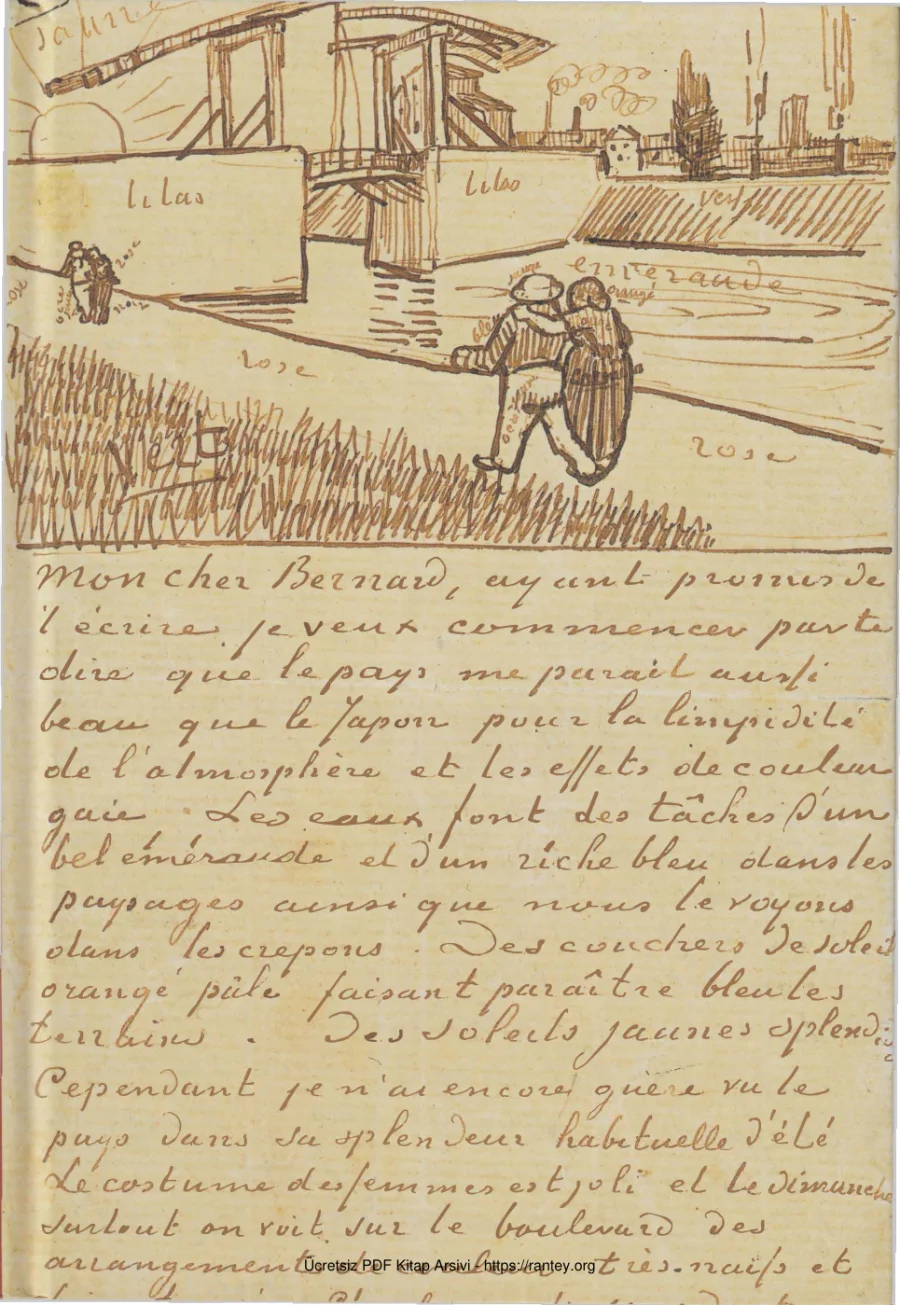 jaune
lilas
lilas
vert
rose
emeraude
jaune
orangé
bleu
rose
noir
rose
rose
vert
Mon cher Bernard, ayant promis de
t'écrire je veux commencer par te
dire que le pays me parait aussi
beau que le Japon pour la limpidité
de l'atmosphère et les effets de couleur
gaie. Les eaux font des tâches d'un
bel éméraude et d'un riche bleu dans les
paysages ainsi que nous le voyons
dans les crepons. Des couchers de soleil
orangé pâle faisant paraître bleu les
terrains. Des soleils jaunes splendi
Cependant je n'ai encore guère vu le
pays dans sa splendeur habituelle d'été
Le costume des femmes est joli et le dimanche
surtout on voit sur le boulevard des
arrangements de couleur très naifs et
Ücretsiz PDF Kitap Arsivi - https://rantey.org